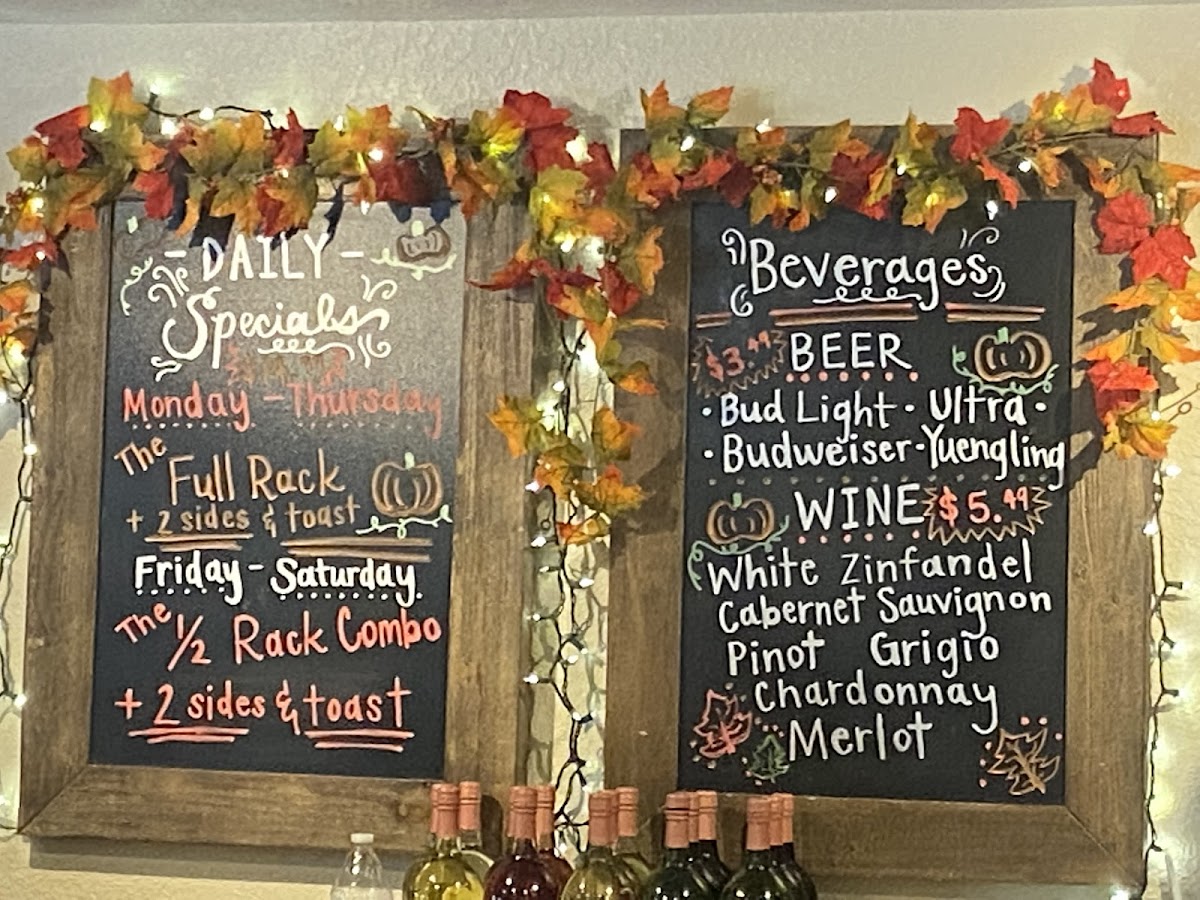 - DAILY -
Specials
Monday - Thursday
The
Full Rack
+ 2 sides & toast
Friday - Saturday
The
1/2 Rack Combo
+ 2 sides & toast
Beverages
$3.49 BEER
· Bud Light · Ultra ·
· Budweiser - Yuengling
WINE $5.49
White Zinfandel
Cabernet Sauvignon
Pinot Grigio
Chardonnay
Merlot